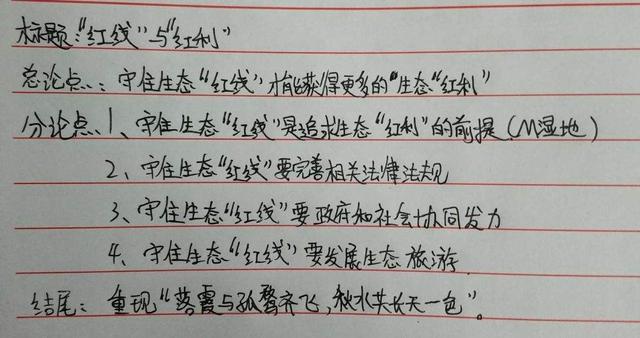 标题："红线"与"红利"
总论点：守住生态"红线"才能获得更多的"生态"红利"
分论点1、守住生态"红线"是追求生态"红利"的前提（M湿地）
2、守住生态"红线"要完善相关法律法规
3、守住生态"红线"要政府和社会协同发力
4、守住生态"红线"要发展生态旅游
结尾：重现"落霞与孤鹜齐飞，秋水共长天一色"。